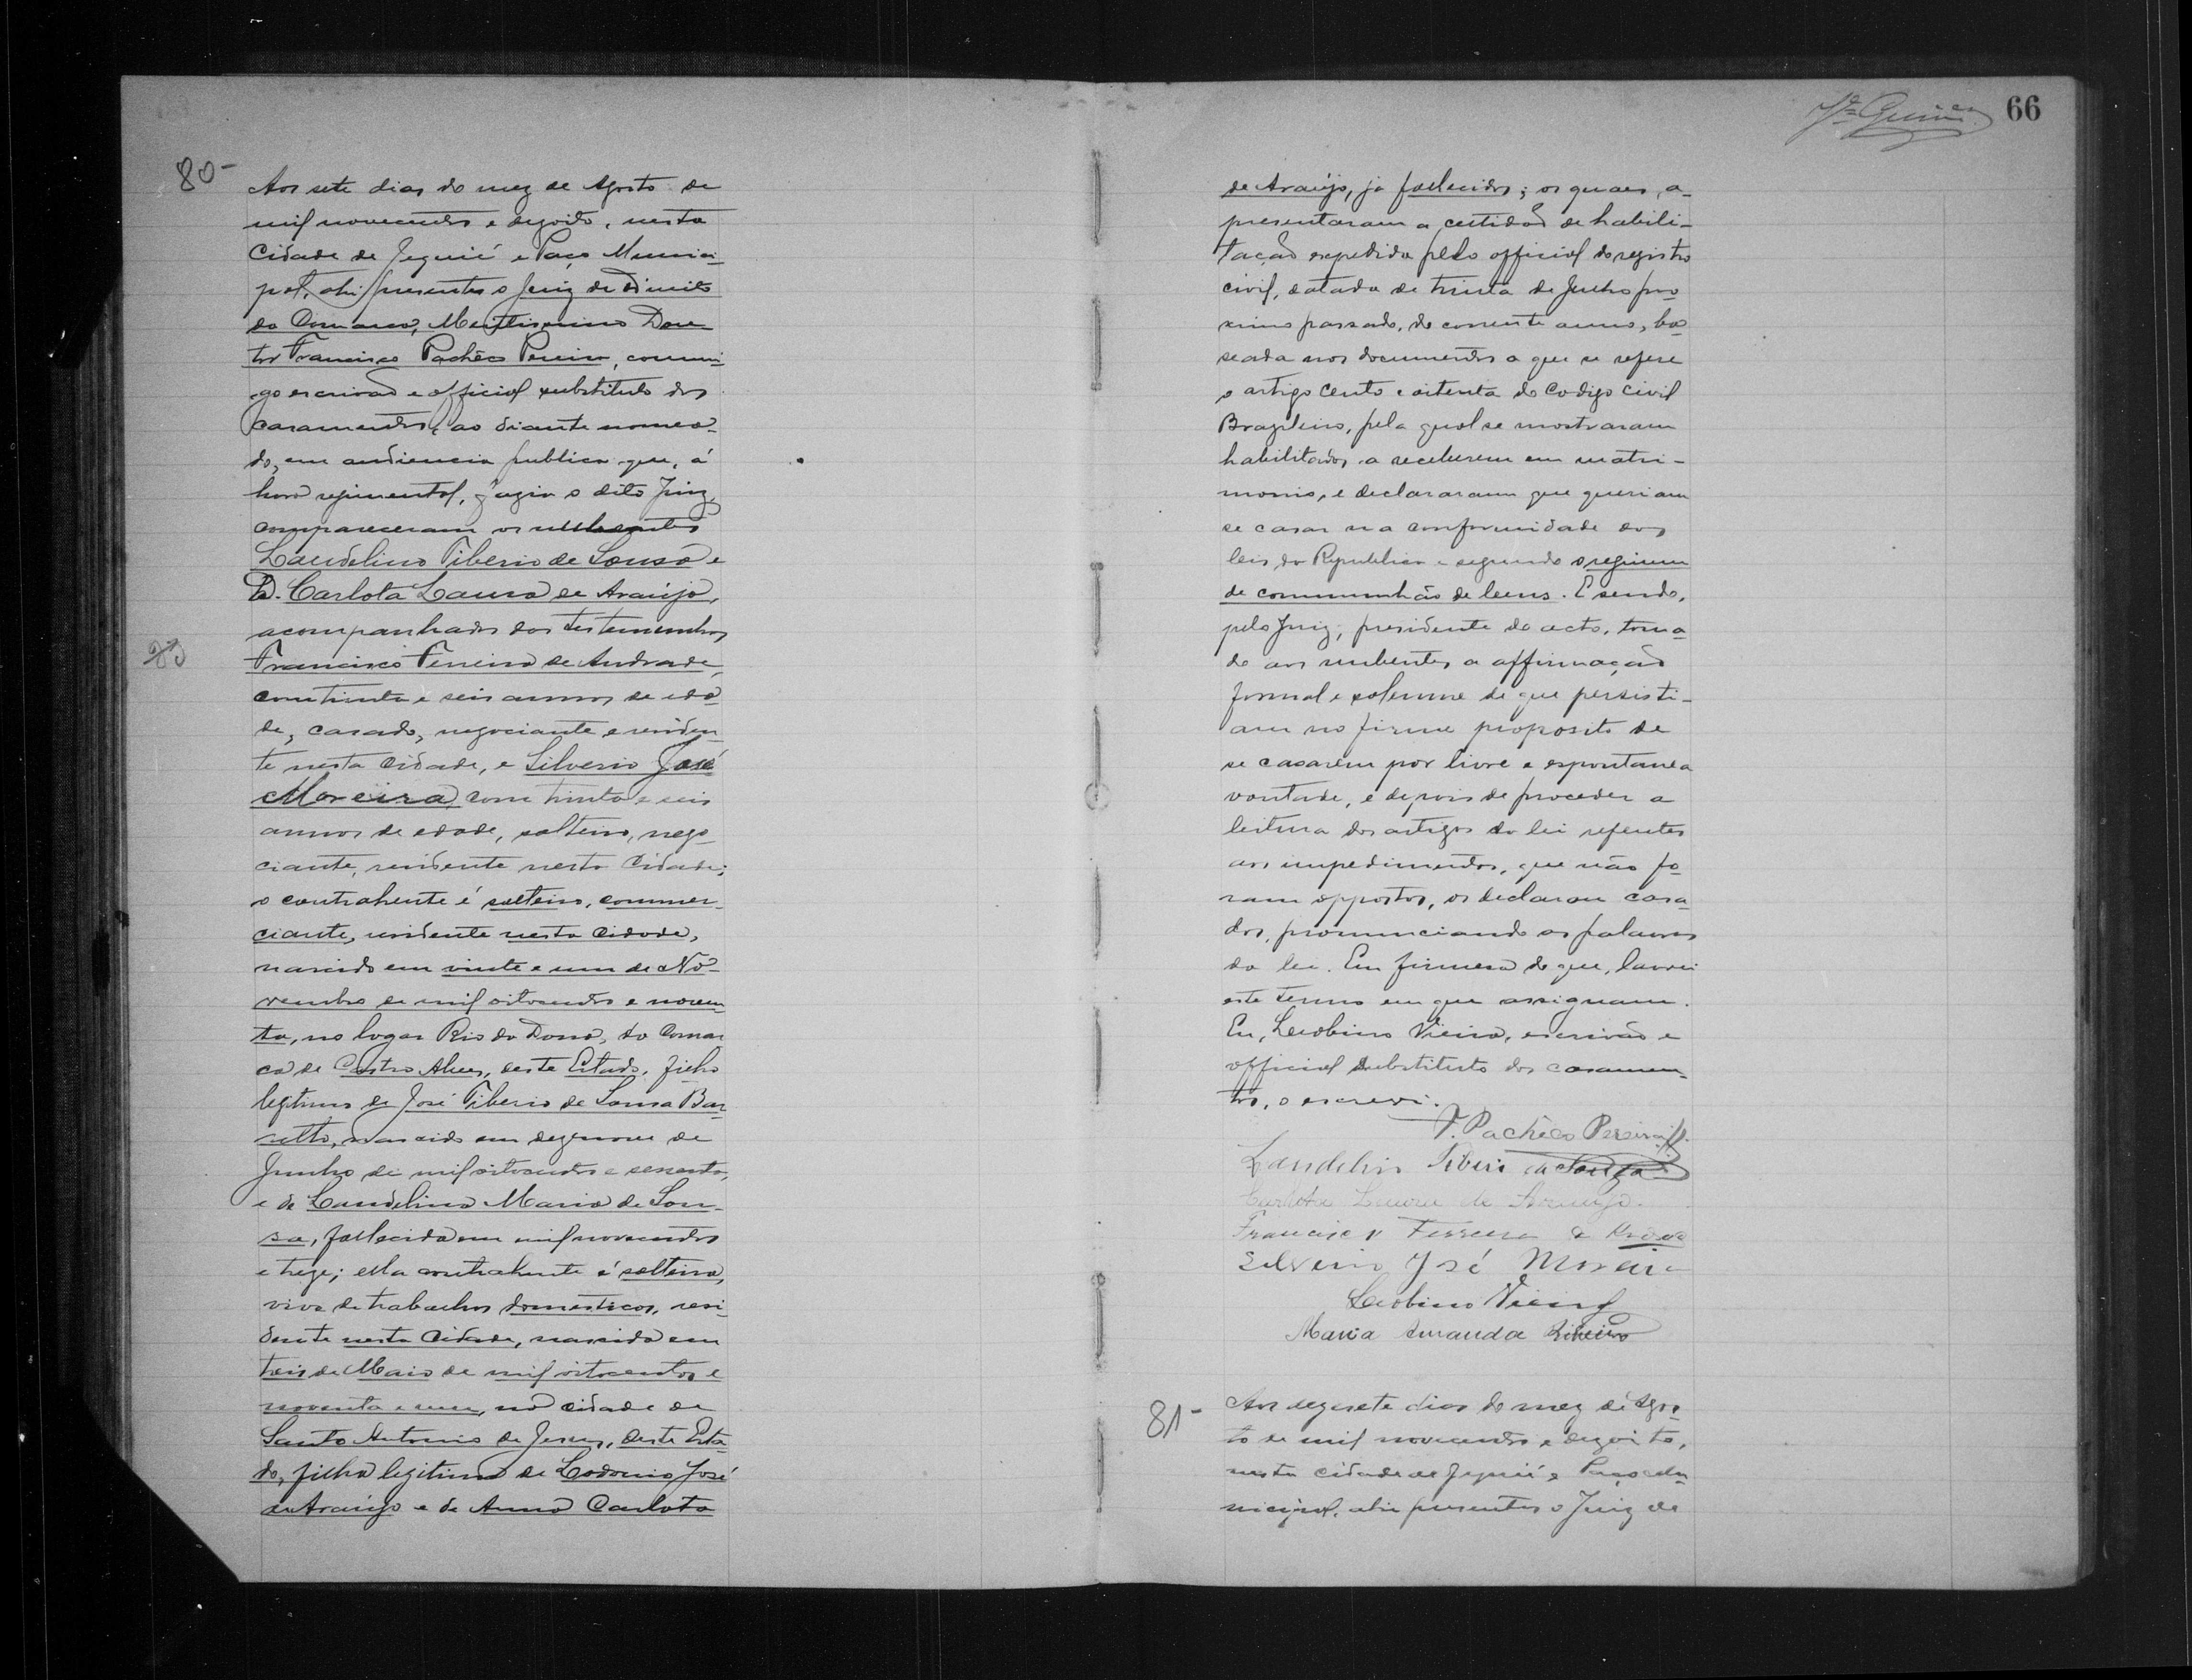 80-
Aos sete dias do mez de Agosto de
mil novecentos e dezoito, nesta
Cidade de Jequié e Paço Munici-
pal, ahi presentes o Juiz de Direito
da Comarca, Meritissimo Dou-
tor Francisco Pachêco Pereira, commi-
go escrivão e official substituto dos
casamentos, ao diante nomea-
do, em audiencia publica que, á
hora regimental, fazia o dito Juiz,
compareceram os nubentes
Laudelino Tiberio de Sousa e
D. Carlota Laura de Araújo,
acompanhados das testemunhas
Francisco Ferreira de Andrade,
com trinta e seis annos de eda-
de, casado, negociante e residen-
te nesta Cidade, e Silverio José
Moreira, com trinta e seis
annos de edade, solteiro, nego-
ciante, residente nesta Cidade;
o contrahente é solteiro, commer-
ciante, residente nesta Cidade,
nascido em vinte e um de No-
vembro de mil oitocentos e noven-
ta, no logar Rio da Dona, da Comar-
ca de Castro Alves, deste Estado, filho
legitimo de José Tiberio de Sousa Bar-
retto, nascido em dezenove de
Junho de mil oitocentos e sessenta,
e de Laudelina Maria de Sou-
sa, fallecida em mil novecentos
e treze; ella contrahente é solteira,
vive de trabalhos domesticos, resi-
dente nesta Cidade, nascida em
treis de Maio de mil oitocentos e
noventa e um, na cidade de
Santo Antonio de Jesus, deste Esta-
do, filha legitima de José
de Araújo e de Anna Carlota
66
de Araújo, já fallecidos; os quaes, a-
presentaram a certidão de habili-
tação expedida pelo official do registro
civil, datada de trinta de Julho pro-
ximo passado, do corrente anno, ba-
seada nos documentos a que se refere
o artigo cento e oitenta do Codigo Civil
Brazileiro, pela qual se mostraram
habilitados a receberem em matri-
monio, e declararam que queriam
se casar na conformidade das
leis da Republica e segundo o regimem
de communhão de bens. E sendo,
pelo Juiz, presidente do acto, toma-
do aos nubentes a affirmação
formal e solemne de que persisti-
am no firme proposito de
se casarem por livre e espontanea
vontade, e depois de proceder a
leitura dos artigos da lei referentes
aos impedimentos, que não fo-
ram oppostos, os declarou casa-
dos, pronunciando as palavras
da lei. Em firmesa do que, lavrei
este termo em que assignam.
Eu, Vieira, escrivão e
official substituto dos casamen-
tos, o escrevi.
F. Pachêco Pereira
Laudelino Tiberio de Souza
Carlota Laura de Araujo.
Francisco Ferreira
Silverio José Moreira
Vieira
Maria Amanda Ribeiro
81-
Aos dezesete dias do mez de Agos-
to de mil novecentos e dezoito,
nesta cidade de Jequié e Paço Mu-
nicipal, ahi presentes o Juiz de